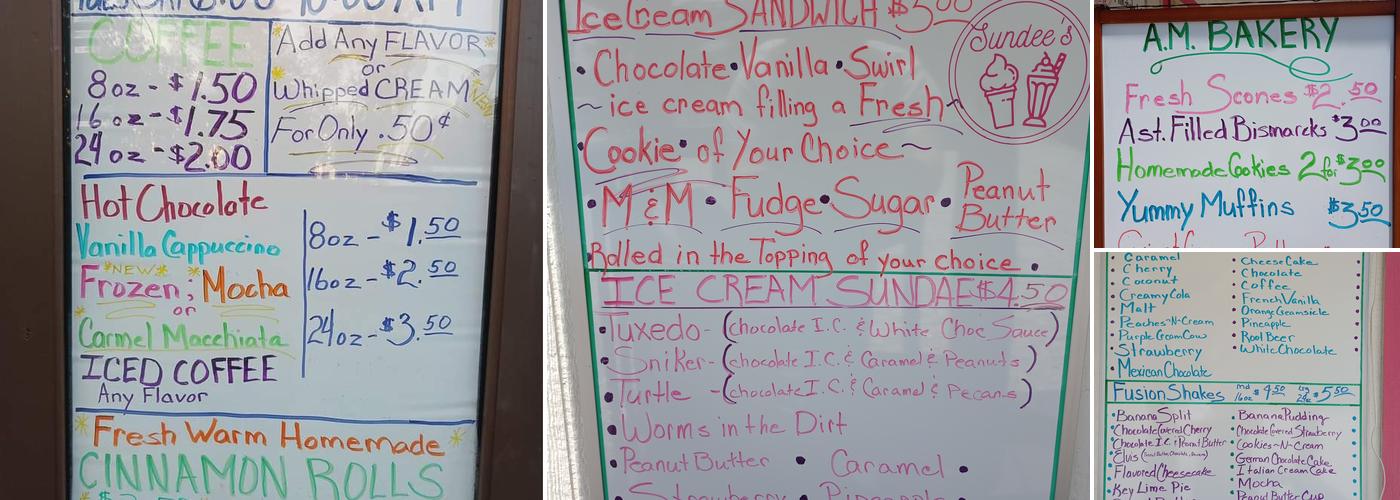 COFFEE
8oz - $1.50
16oz - $1.75
24oz - $2.00
Add Any FLAVOR
or
Whipped CREAM
For Only .50¢
Hot Chocolate
Vanilla Cappuccino
*NEW*
Frozen; Mocha
or
Carmel Macchiata
ICED COFFEE
Any Flavor
8oz - $1.50
16oz - $2.50
24oz - $3.50
Fresh Warm Homemade
CINNAMON ROLLS
IceCream SANDWICH $5.00
Sundee's
• Chocolate • Vanilla • Swirl
~ ice cream filling a Fresh ~
Cookie • of Your Choice ~
• M&M • Fudge • Sugar • Peanut Butter
Rolled in the Topping of your choice.
ICE CREAM SUNDAE $4.50
• Tuxedo - (chocolate I.C. & White Choc Sauce)
• Sniker - (chocolate I.C. & Caramel & Peanuts)
• Turtle - (chocolate I.C. & Caramel & Pecans)
• Worms in the Dirt
• Peanut Butter • Caramel •
Strawberry • Pineapple
A.M. BAKERY
Fresh Scones $2.50
Ast. Filled Bismarcks $3.00
Homemade Cookies 2 for $3.00
Yummy Muffins $3.50
Caramel
• Cherry
• Coconut
• Creamy Cola
• Malt
• Peaches-N-Cream
• Purple Cream Cow
• Strawberry
• Mexican Chocolate
• CheeseCake
• Chocolate
• Coffee
• French Vanilla
• Orange Creamsicle
• Pineapple
• Root Beer
• White Chocolate
Fusion Shakes md 16oz $4.50 lrg 24oz $5.50
• Banana Split
• Chocolate Covered Cherry
• Chocolate I.C. & Peanut Butter
• Elvis
• Flavored Cheesecake
• Key Lime Pie
• Banana Pudding
• Chocolate Covered Strawberry
• Cookies-N-Cream
• German Chocolate Cake
• Italian Cream Cake
• Mocha
Peanut Butter Cup